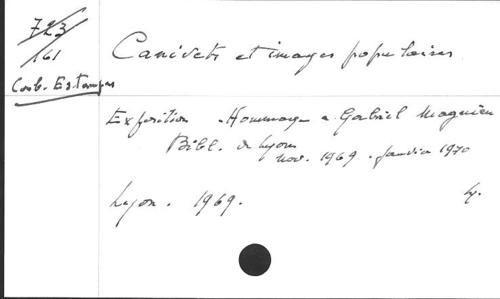 723/161
Canivets et images populaires
Comb. Estampes
Exposition Hommage à Gabriel Magnien
Bibl. de Lyon
nov. 1969 - janvier 1970
Lyon. 1969.